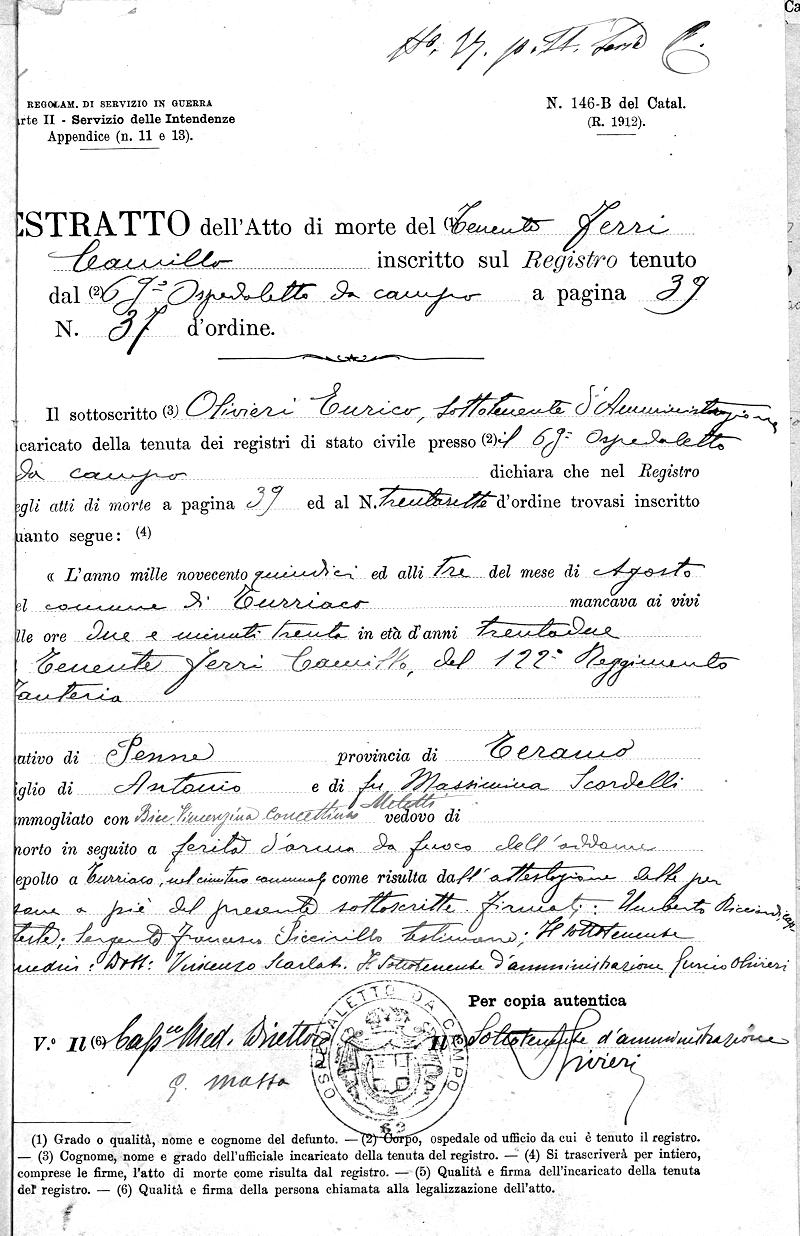 Ca
No. 27. p. II. Serie C.
REGOLAM. DI SERVIZIO IN GUERRA
rte II - Servizio delle Intendenze
Appendice (n. 11 e 13).
N. 146-B del Catal.
(R. 1912).
ESTRATTO dell'Atto di morte del (1) Tenente Ferri
Camillo inscritto sul Registro tenuto
dal (2) 69º Ospedaletto da campo a pagina 39
N. 37 d'ordine.
Il sottoscritto (3) Olivieri Enrico, sottotenente d'Amministrazione
caricato della tenuta dei registri di stato civile presso (2) il 69º Ospedaletto
da campo dichiara che nel Registro
egli atti di morte a pagina 39 ed al N. trentasette d'ordine trovasi inscritto
uanto segue: (4)
« L'anno mille novecento quindici ed alli tre del mese di Agosto
el comune di Turriaco mancava ai vivi
lle ore due e minuti trenta in età d'anni trentadue
Tenente Ferri Camillo, del 122º Reggimento
Fanteria
ativo di Penne provincia di Teramo
glio di Antonio e di fu Massimina Scordelli
mmogliato con Bice Vincenzina Concettina Meletti vedovo di
morto in seguito a ferita d'arma da fuoco dell'addome
epolto a Turriaco, nel cimitero comunale come risulta dall'attestazione delle per
sone a piè del presente sottoscritte. Firmati: Umberto Ricciardi cap.
teste; Sergente Francesco Piccirillo testimone; Il Sottotenente
medico: Dott: Vincenzo Scarlat. Il Sottotenente d'amministrazione Enrico Olivieri
Per copia autentica
V.º Il (6) Cap.no Med. Direttore
G. Massa
Il Sottotenente d'amministrazione
Olivieri
OSPEDALETTO DA CAMPO
69
(1) Grado o qualità, nome e cognome del defunto. — (2) Corpo, ospedale od ufficio da cui è tenuto il registro.
— (3) Cognome, nome e grado dell'ufficiale incaricato della tenuta del registro. — (4) Si trascriverà per intiero,
comprese le firme, l'atto di morte come risulta dal registro. — (5) Qualità e firma dell'incaricato della tenuta
del registro. — (6) Qualità e firma della persona chiamata alla legalizzazione dell'atto.